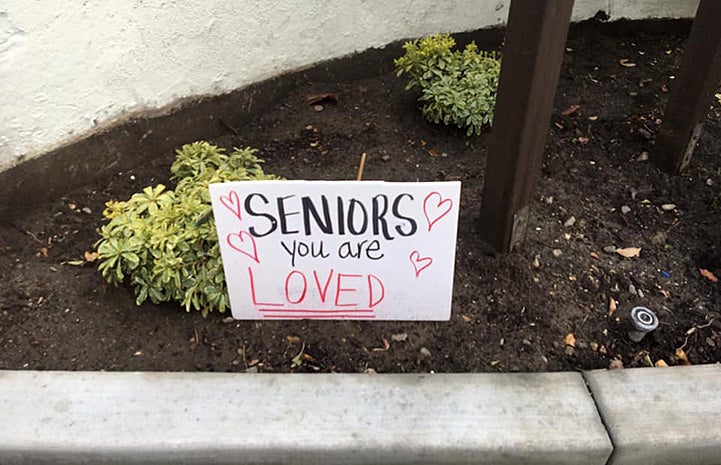 SENIORS
you are
LOVED